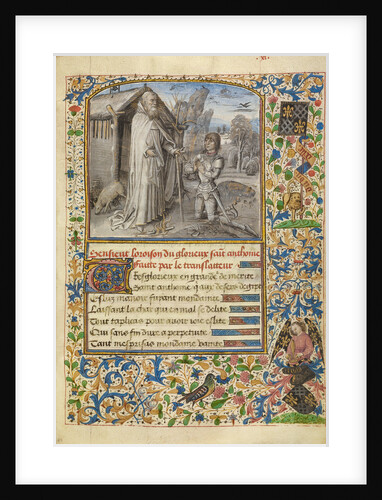 Sensieut loroison du glorieux saint anthoine
faitte par le translateur
Tres glorieux en grandeur de merite
Saint anthoine qui aux desers
Esleus manoir fuyant mondanite
Laissant la char qui en mal se delite
Tout tapliquas pour avoir vie eslite
Qui sans fin dure a perpetuite
Tant mesprisas mondaine vanite